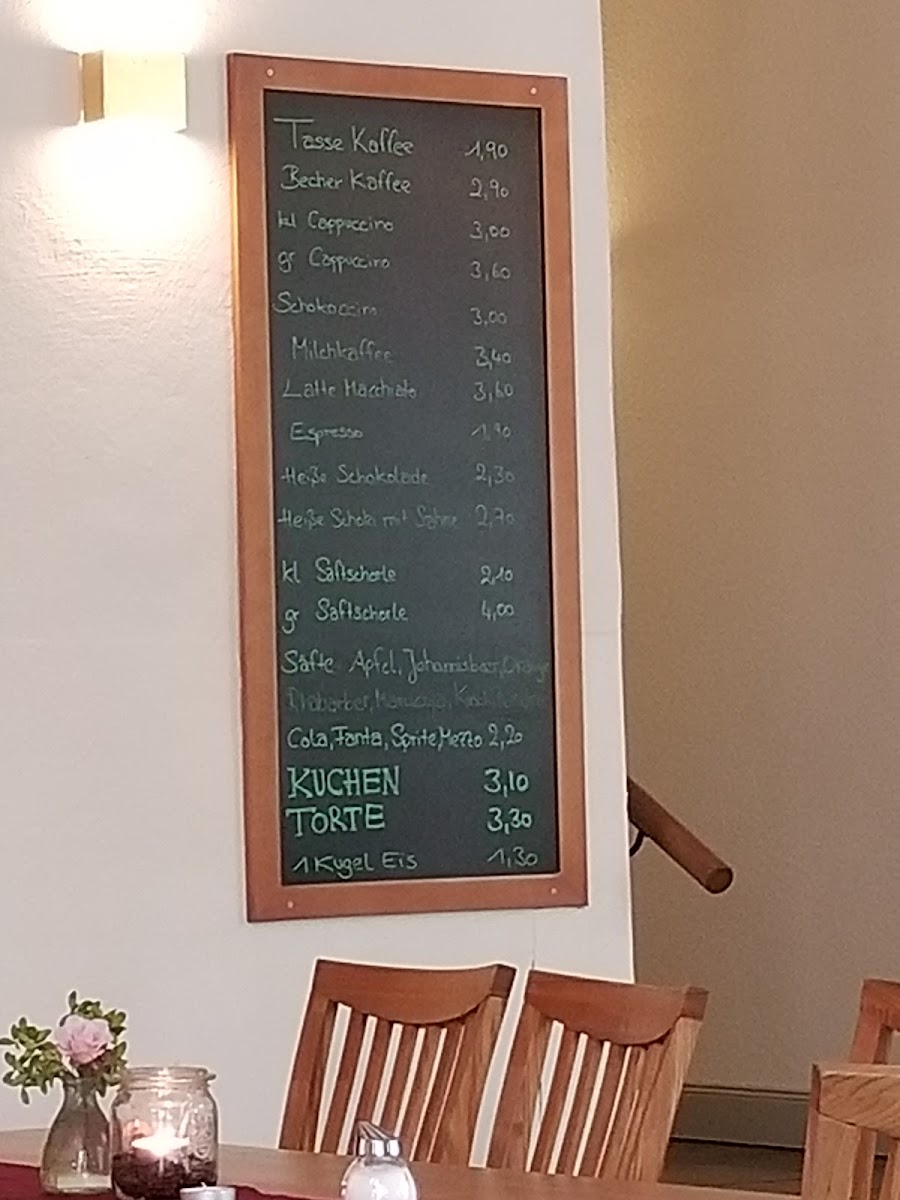 Tasse Kaffee 1,90
Becher Kaffee 2,90
kl Cappuccino 3,00
gr Cappuccino 3,60
Schokoccino 3,00
Milchkaffee 3,40
Latte Macchiato 3,60
Espresso 1,90
Heiße Schokolade 2,30
Heiße Schoko mit Sahne 2,70
kl Saftschorle 2,10
gr Saftschorle 4,00
Säfte Apfel, Johannisbeer, Orange
Rhabarber, Maracuja, Kirsch,
Cola, Fanta, Sprite, Mezzo 2,20
KUCHEN 3,10
TORTE 3,30
1 Kugel Eis 1,30